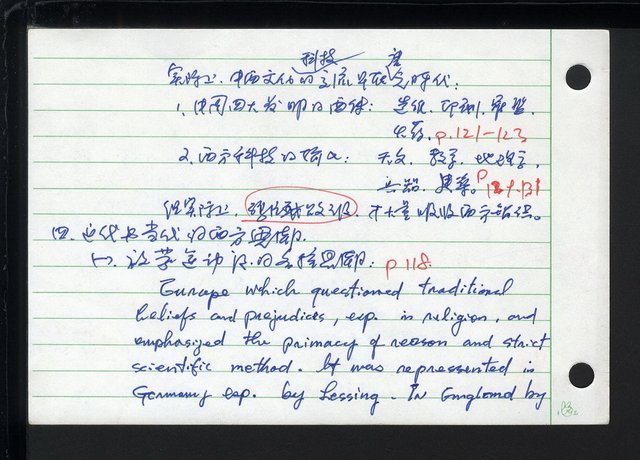 科技 唐
实际上，中西文化的交流早在 时代：
1. 中国四大发明的西传：造纸、印刷、罗盘、
火药。p.121-123
2. 西方科技的输入：天文、数学、地理学、
兵器、 p 129-131
但实际上， 才大量吸收西方
四、近代与当代的西方
启蒙运动 的 思潮： p 118.
Europe which questioned traditional
beliefs and prejudices, esp. in religion, and
emphasized the primacy of reason and strict
scientific method. It was repressented in
Germany esp. by Lessing. In England by